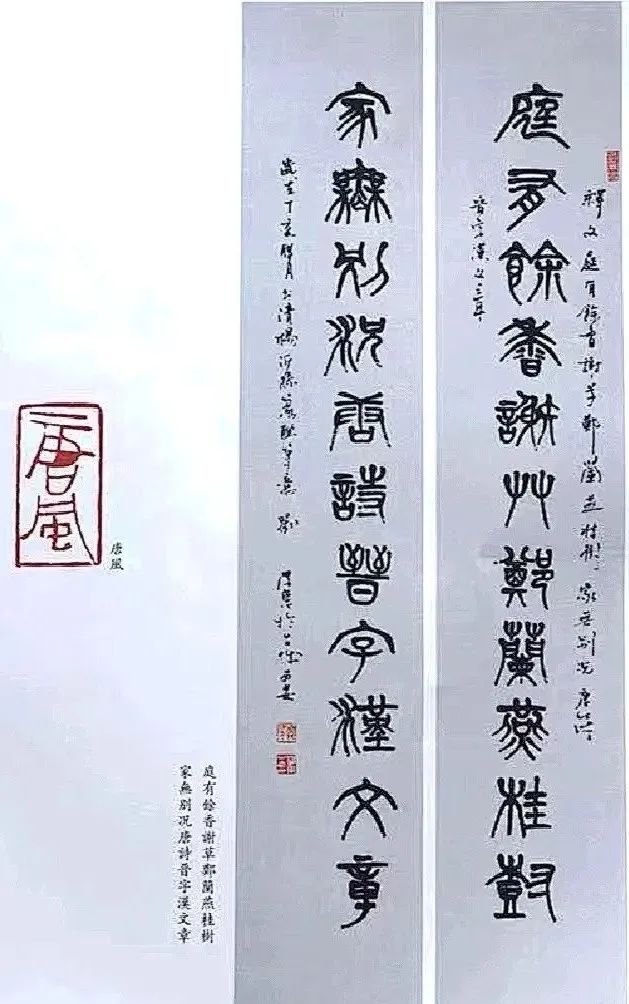 釋文庭有餘香謝草鄭蘭燕桂樹家無別況唐詩
庭有餘香謝草鄭蘭燕桂樹
晉字漢文章
家無別況唐詩晉字漢文章
歲在丁亥
庭有餘香謝草鄭蘭燕桂樹
家無別況唐詩晉字漢文章
唐風
唐風